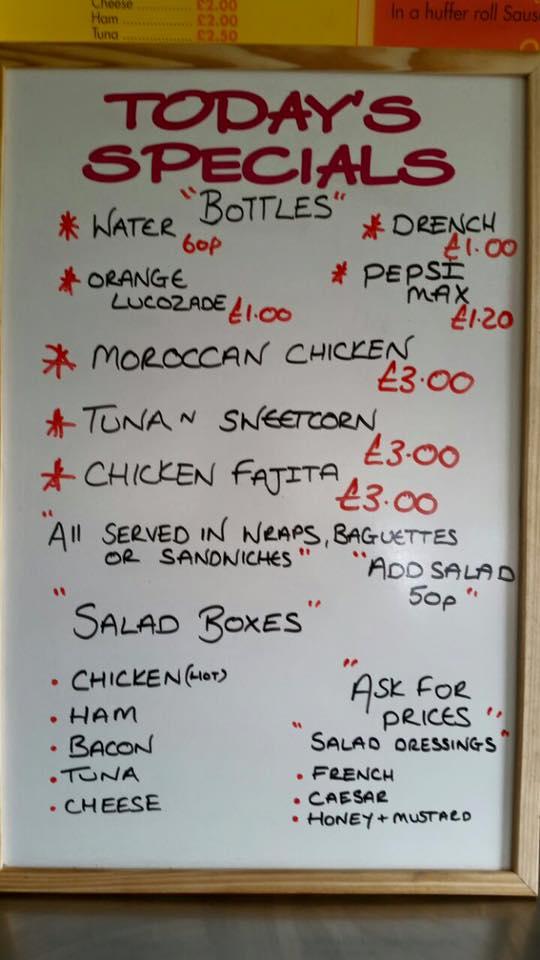 Cheese ............ £2.00
Ham ............... £2.00
Tuna ............... £2.50
In a huffer roll Saus
TODAY'S
SPECIALS
"BOTTLES"
* WATER 60p
* DRENCH £1.00
* ORANGE
LUCOZADE £1.00
* PEPSI
MAX
£1.20
* MOROCCAN CHICKEN
£3.00
* TUNA N SWEETCORN
£3.00
* CHICKEN FAJITA
£3.00
"All SERVED IN WRAPS, BAGUETTES
OR SANDWICHES"
"ADD SALAD
50p"
"SALAD BOXES"
• CHICKEN (HOT)
• HAM
• BACON
• TUNA
• CHEESE
"ASK FOR
PRICES"
"SALAD DRESSINGS"
• FRENCH
• CAESAR
• HONEY + MUSTARD